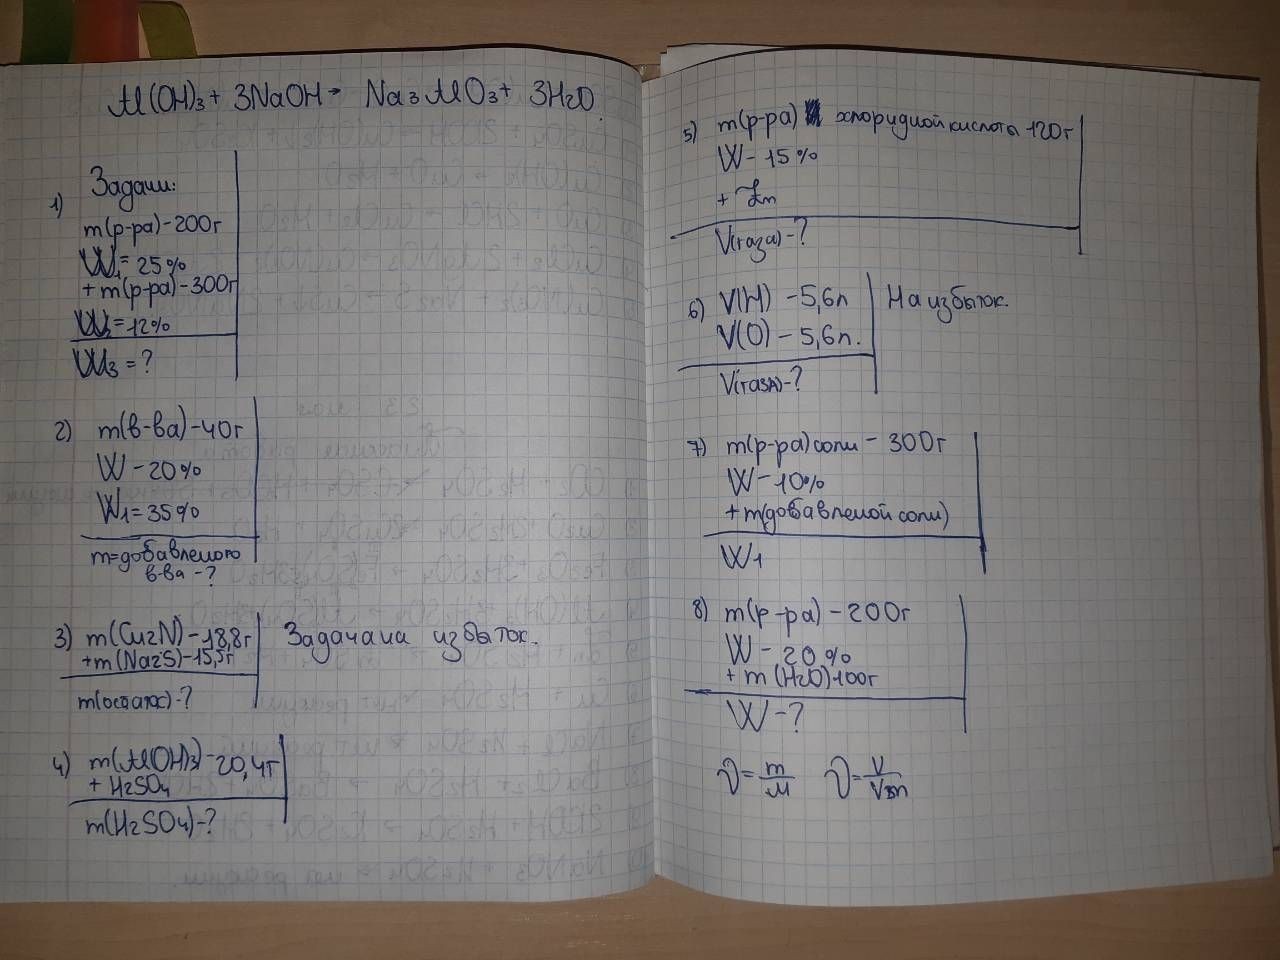 Al(OH)₃ + 3NaOH → Na₃AlO₃ + 3H₂O
Задачи:
1)
m(р-ра) - 200г
W₁ = 25%
+ m(р-ра) - 300г
W₂ = 12%
W₃ = ?
2) m(в-ва) - 40г
W - 20%
W₁ = 35%
m = добавленого
в-ва - ?
3) m(Cu₂N) - 18,8г Задача на избыток.
+ m(Na₂S) - 15,5г
m(осадок) - ?
4) m(Al(OH)₃) - 20,4г
+ H₂SO₄
m(H₂SO₄) - ?
5) m(р-ра) хлоридной кислоты 120г
W - 15%
+ Zn
V(газа) - ?
6) V(H) - 5,6л На избыток.
V(O) - 5,6л.
V(газа) - ?
7) m(р-ра) соли - 300г
W - 10%
+ m(добавленой соли)
W₁
8) m(р-ра) - 200г
W - 20%
+ m(H₂O) 100г
W - ?
ν = m/M ν = V/Vm